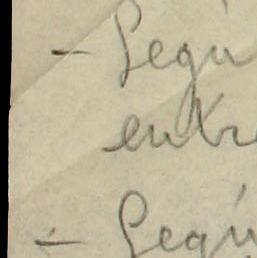 - Segú
entr
- Segú